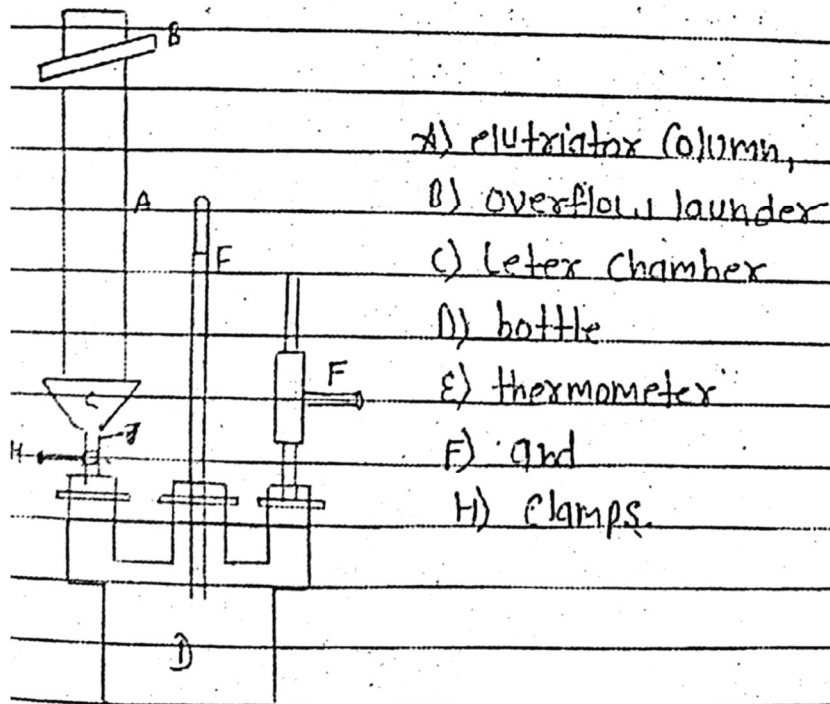 B
A) elutriator Column,
A
B) overflow launder
F
C) Leter Chamber
D) bottle
F
C
E) thermometer
H
F) and
H) Clamps.
D